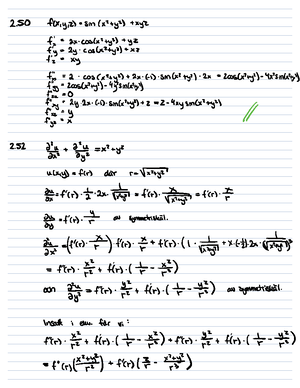 2.50 f(x,y,z) = sin(x²+y²) + xyz
f'x = 2x·cos(x²+y²) + yz
f'y = 2y·cos(x²+y²) + xz
f'z = xy
f''xx = 2·cos(x²+y²) + 2x·(-1)·sin(x²+y²)·2x = 2cos(x²+y²) - 4x²sin(x²+y²)
f''yy = 2cos(x²+y²) - 4y²sin(x²+y²)
f''zz = 0
f''xy = 2y·2x·(-1)·sin(x²+y²) + z = z - 4xy sin(x²+y²)
f''xz = y
f''yz = x
2.52 ∂²u/∂x² + ∂²u/∂y² = x²+y²
u(x,y) = f(r) där r = √(x²+y²)
∂u/∂x = f'(r)·1/2·2x·1/√(x²+y²) = f'(r)·x/√(x²+y²) = f'(r)·x/r
∂u/∂y = f'(r)·y/r av symmetriskäl.
∂²u/∂x² = (f''(r)·x/r)·x/r + f'(r)·(1·1/√(x²+y²) + x·(-1/2)·2x·
= f''(r)·x²/r² + f'(r)·(1/r - x²/r³)
och ∂²u/∂y² = f''(r)·y²/r² + f'(r)·(1/r - y²/r³) av symmetriskäl.
Insatt i ekv. får vi:
f''(r)·x²/r² + f'(r)·(1/r - x²/r³) + f''(r)·y²/r² + f'(r)·(1/r - y²/r³)
= f''(r)((x²+y²)/r²) + f'(r)(2/r - (x²+y²)/r³)